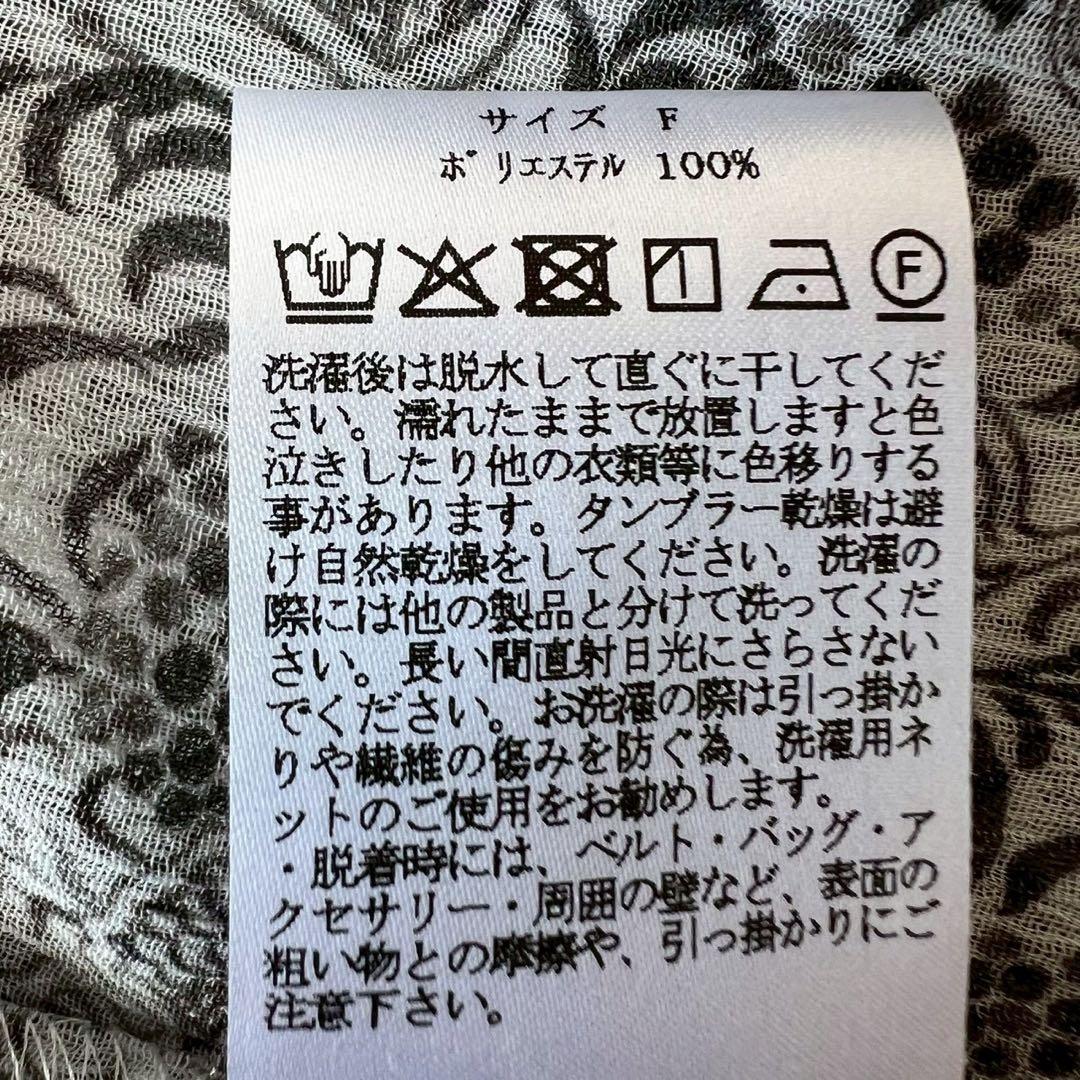 サイズ F
ポリエステル 100%
F
洗濯後は脱水して直ぐに干してくだ
さい。濡れたままで放置しますと色
泣きしたり他の衣類等に色移りする
事があります。タンブラー乾燥は避
け自然乾燥をしてください。洗濯の
際には他の製品と分けて洗ってくだ
さい。長い間直射日光にさらさない
でください。お洗濯の際は引っ掛か
りや繊維の傷みを防ぐ為、洗濯用ネ
ットのご使用をお勧めします。
・脱着時には、ベルト・バッグ・ア
クセサリー・周囲の壁など、表面の
粗い物との摩擦や、引っ掛かりにご
注意下さい。